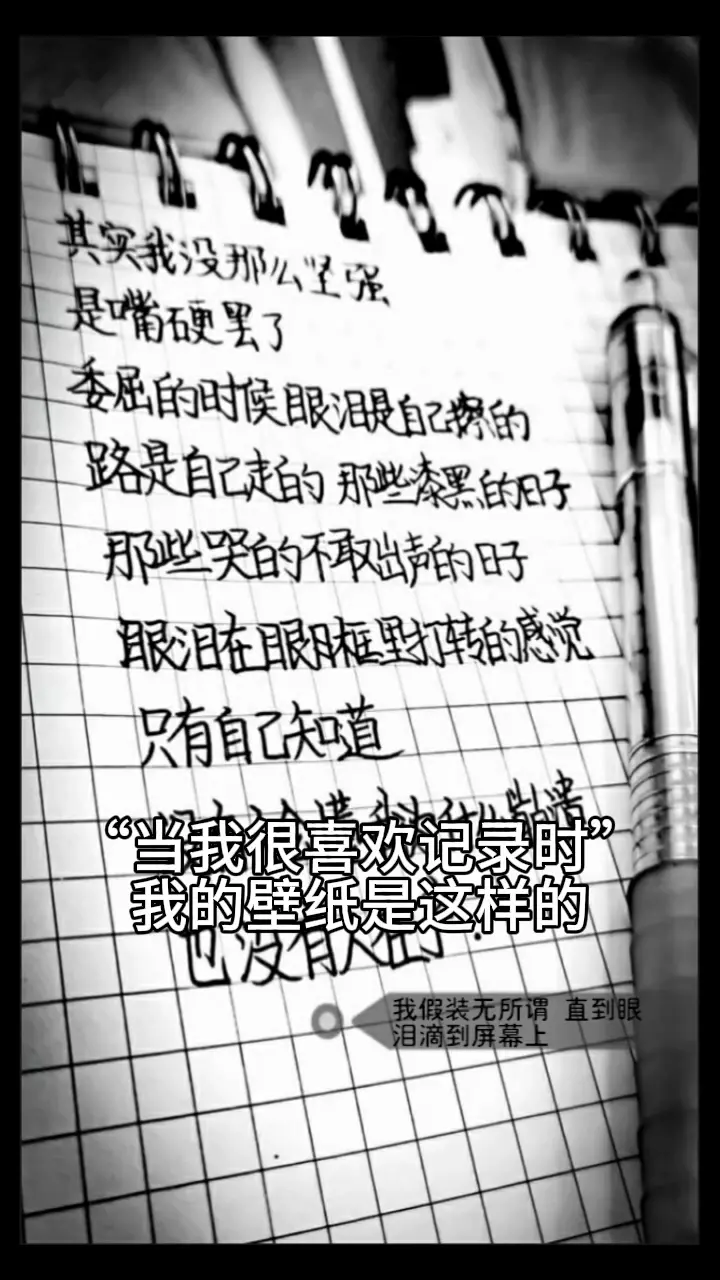 其实我没那么坚强
是嘴硬罢了
委屈的时候眼泪是自己擦的
路是自己走的 那些漆黑的日子
那些哭的不敢出声的日子
眼泪在眼眶里打转的感觉
只有自己知道
“当我很喜欢记录时”
我的壁纸是这样的
也没有人在乎
我假装无所谓 直到眼
泪滴到屏幕上